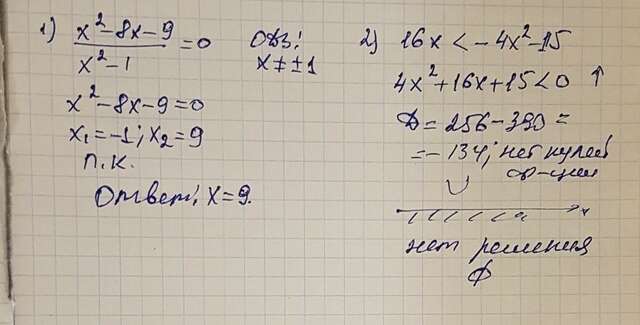 1) x²-8x-9 / x²-1 = 0 ОДЗ:
x ≠ ±1
x²-8x-9=0
x₁=-1; x₂=9
п.к.
Ответ: x=9.
2) 16x < -4x²-15
4x²+16x+15<0 ↑
D = 256-390 =
=-134; нет нулей
ф-ции
x
нет решения
∅